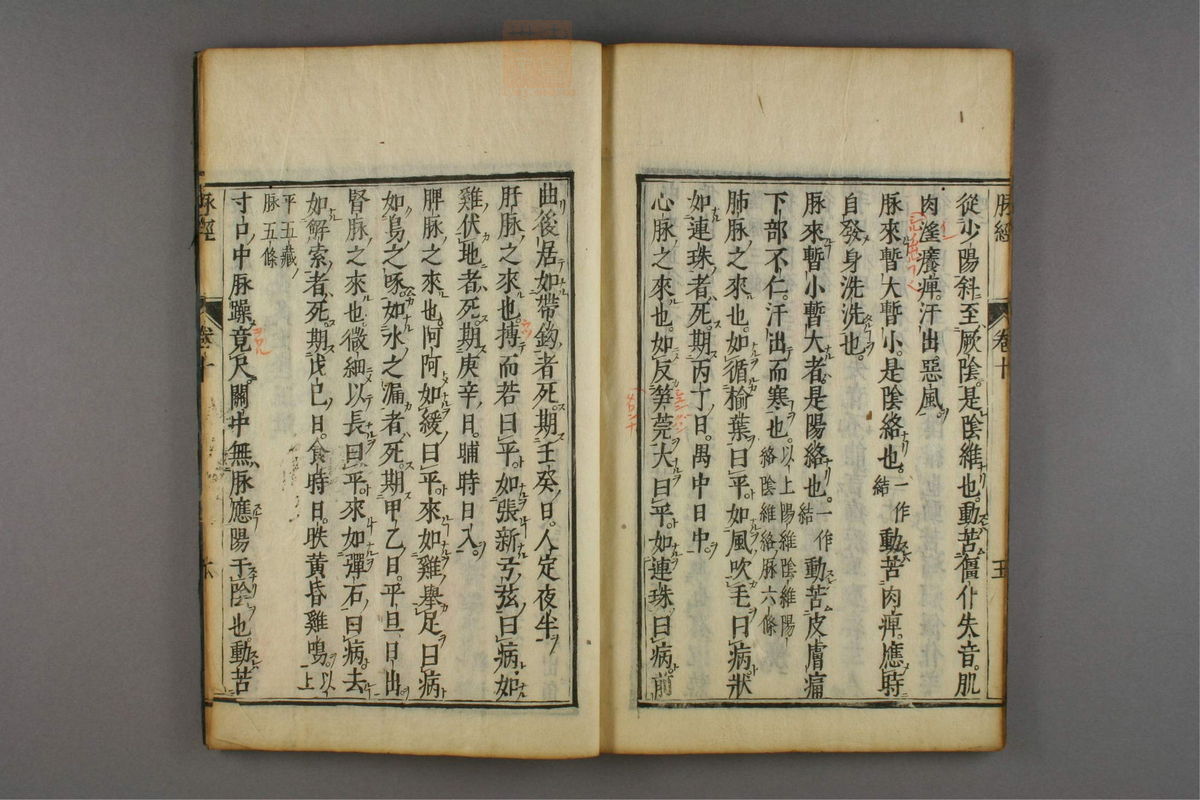 脉經
卷十
五
從少陽斜至厥陰。是陰維也。動苦僵仆失音。肌
肉淫癢痺。汗出惡風。
脉來暫大暫小。是陰絡也 一作結 動苦肉痺。應時
自發身洗洗也。
脉來暫小暫大者。是陽絡也。一作結 動苦皮膚痛
下部不仁。汗出而寒也。以上陽維陰維陽絡陰維絡脉六條
肺脉之來也。如循榆葉曰平。如風吹毛曰病。狀
如連珠者死。期丙丁日。禺中日中。
心脉之來也。如反笋莞大曰平。如連珠曰病。前
曲後居如帶鉤者死。期壬癸日。人定夜半
肝脉之來也。搏而若曰平。如張新弓弦曰病。如
雞伏地者死。期庚辛日。晡時日入。
脾脉之來也。阿阿如緩曰平。來如雞舉足曰病
如鳥之啄。如水之漏者死。期甲乙日。平旦。日出
腎脉之來也。微細以長曰平。來如彈石曰病。去
如解索者死。期戊巳日。食時日昳黄昏雞鳴。以上平五藏脉五條
寸口中脉躁竟尺關中無脉應陽干陰也。動苦
脉經
卷十